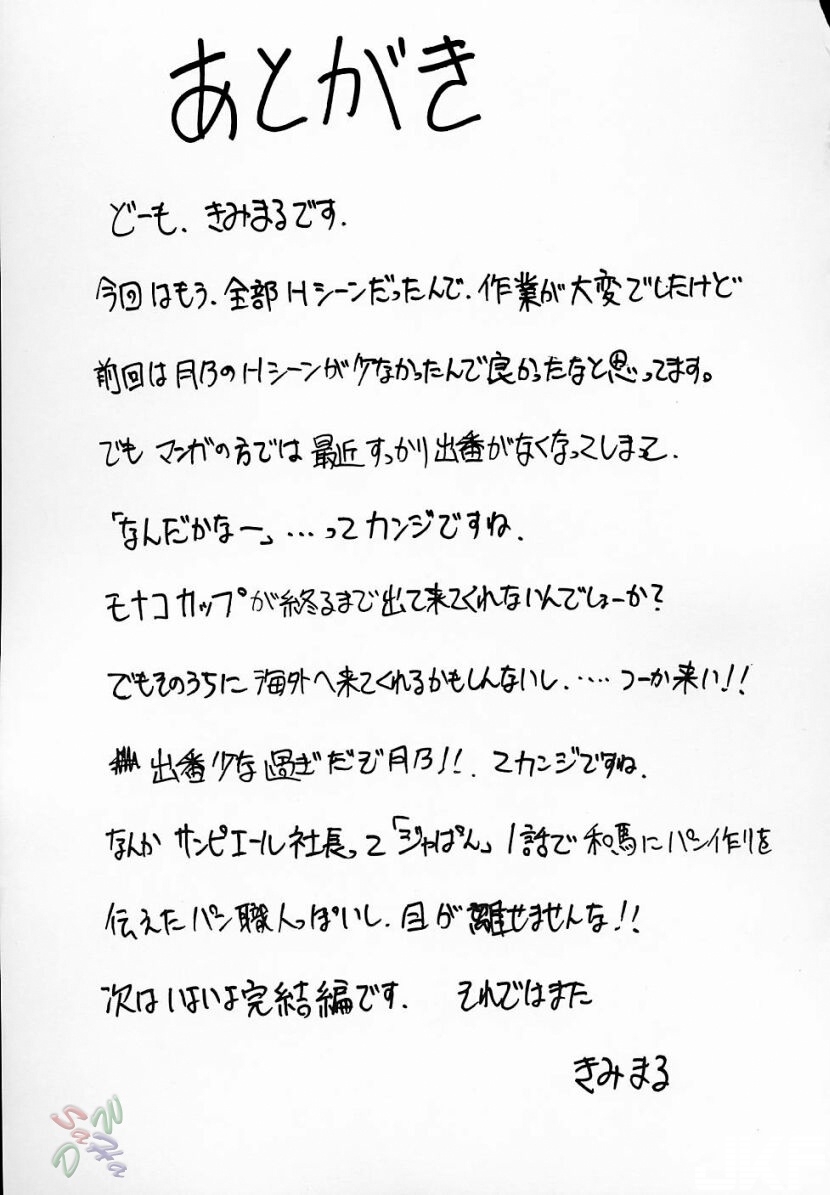 あとがき
どーも、きみまるです.
今回はもう、全部Hシーンだったんで、作業が大変でしたけど
前回は月乃のHシーンが少なかったんで良かったなと思ってます。
でもマンガの方では最近すっかり出番がなくなってしまって、
「なんだかなー」…ってカンジですね.
モナコカップが終るまで出て来てくれないんでしょーか?
でもそのうちに海外へ来てくれるかもしんないし、….. つーか来い!!
出番少な過ぎだぞ月乃!!. てカンジですね.
なんかサンピエール社長って「ジャぱん」1話で和馬にパン作りを
伝えたパン職人っぽいし、目が離せませんな!!
次はいよいよ完結編です. それではまた
きみまる